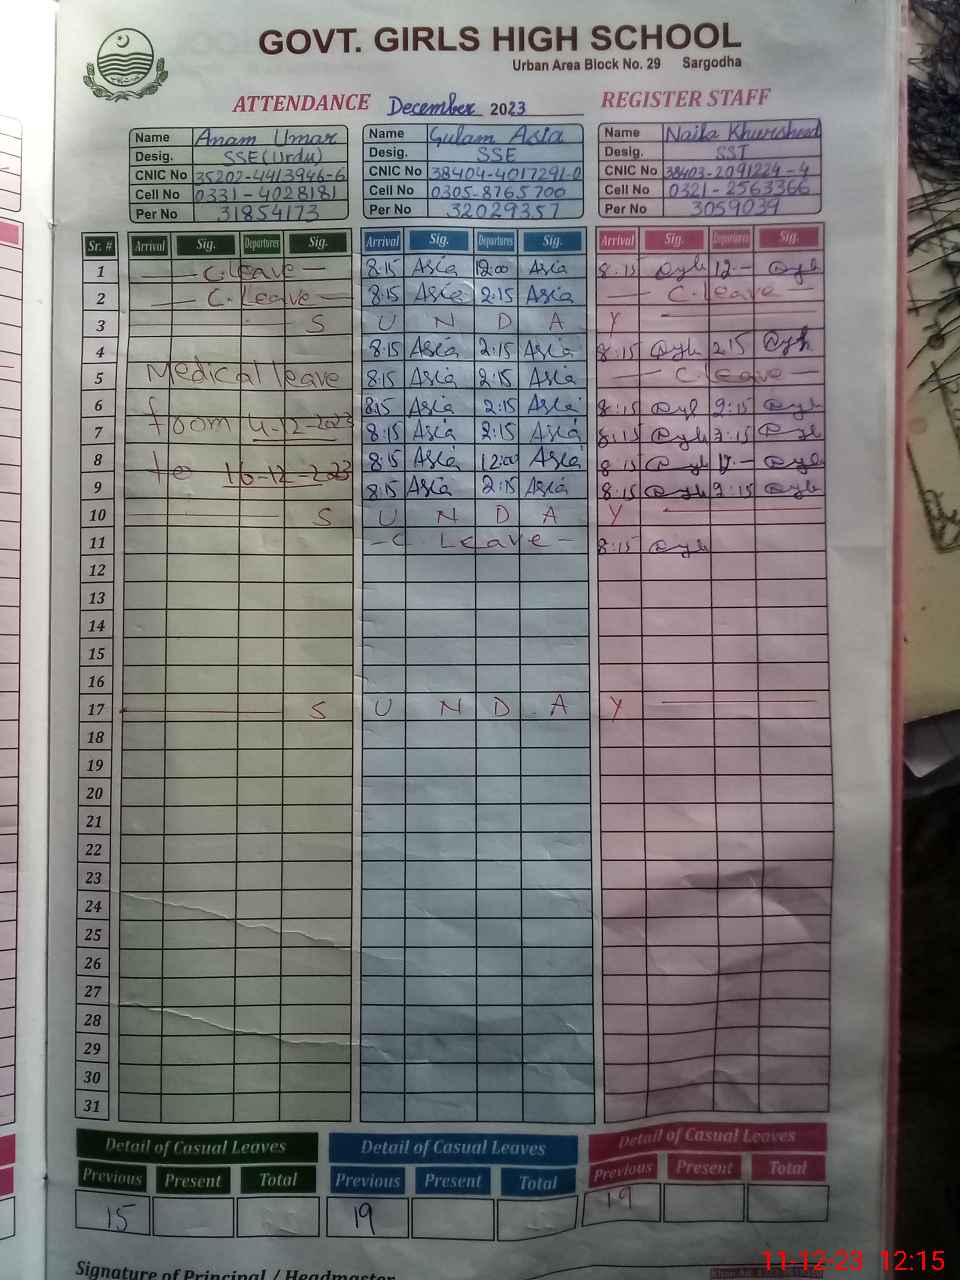 GOVT. GIRLS HIGH SCHOOL
Urban Area Block No. 29 Sargodha
ATTENDANCE December 2023 REGISTER STAFF
Name Anam Umar Name Gulam Asia Name Naila Khurshead
Desig. SSE (Urdu) Desig. SSE Desig. SST
CNIC No 35202-4413946-6 CNIC No 38404-4017291-0 CNIC No 38403-2091224-4
Cell No 0331-4028181 Cell No 0305-8765700 Cell No 0321-2563366
Per No 31854173 Per No 32029357 Per No 3059039
Sr. # Arrival Sig. Departures Sig. Arrival Sig. Departures Sig. Arrival Sig. Departures Sig.
1 C.leave 8:15 Asia 12:00 Asia 8:15 12
2 C.Leave 8:15 Asia 2:15 Asia C.leave
3 S U N D A Y
4 8:15 Asia 2:15 Asia 8:15 2:15
5 Medical leave 8:15 Asia 2:15 Asia C leave
6 8:15 Asia 2:15 Asia 8:15 2:15
7 from 4-12-2023 8:15 Asia 2:15 Asia 8:15 2:15
8 to 16-12-2023 8:15 Asia 12:00 Asia 8:15
9 8:15 Asia 2:15 Asia 8:15 2:15
10 S U N D A Y
11 C Leave 8:15
12
13
14
15
16
17 S U N D A Y
18
19
20
21
22
23
24
25
26
27
28
29
30
31
Detail of Casual Leaves Detail of Casual Leaves Detail of Casual Leaves
Previous Present Total Previous Present Total Previous Present Total
15 19 19
Signature of Principal / Headmaster
11-12-23 12:15